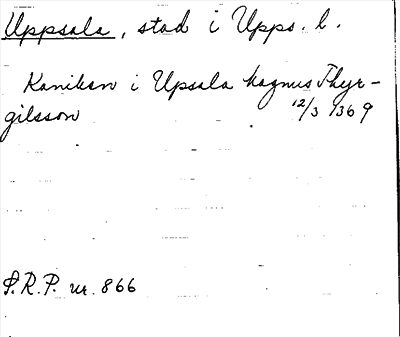 Uppsala, stad i Upps. l.
Kaniken i Upsala Magnus Thyr-
gilsson 12/3 1369
S.R.P. nr. 866